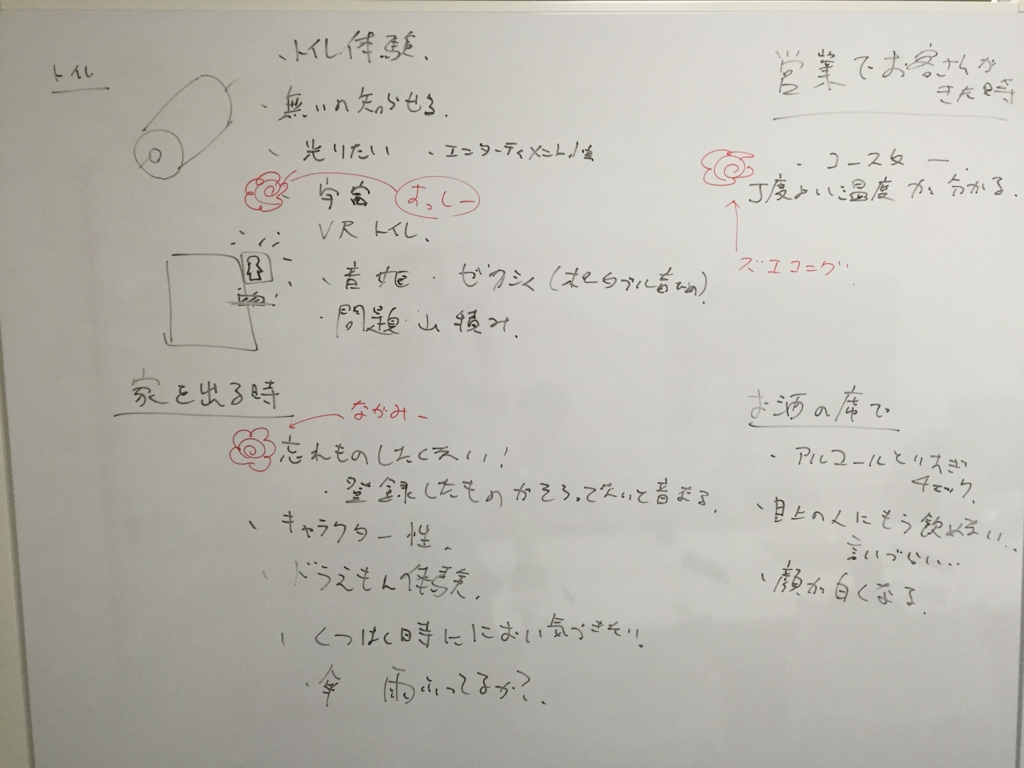 トイレ
・トイレ体験.
・無いの知らせる.
・光りたい ・エンターティメント性
宇宙 むっしー
VRトイレ.
・音姫 ・ゼクシィ
・問題山積み.
営業でお客さんが
きた時
・コースター.
丁度よい温度が分かる.
ズエコング
家を出る時
ながみー
忘れものしたくない!
・登録したものがそろってないと音なる.
・キャラクター性.
・ドラえもん体験.
・くつはく時ににおい気づきたい!
・傘 雨ふってるか?.
お酒の席で
・アルコールとりすぎ
チェック.
・目上の人にもう飲めない…
言いづらい…
・顔が白くなる.